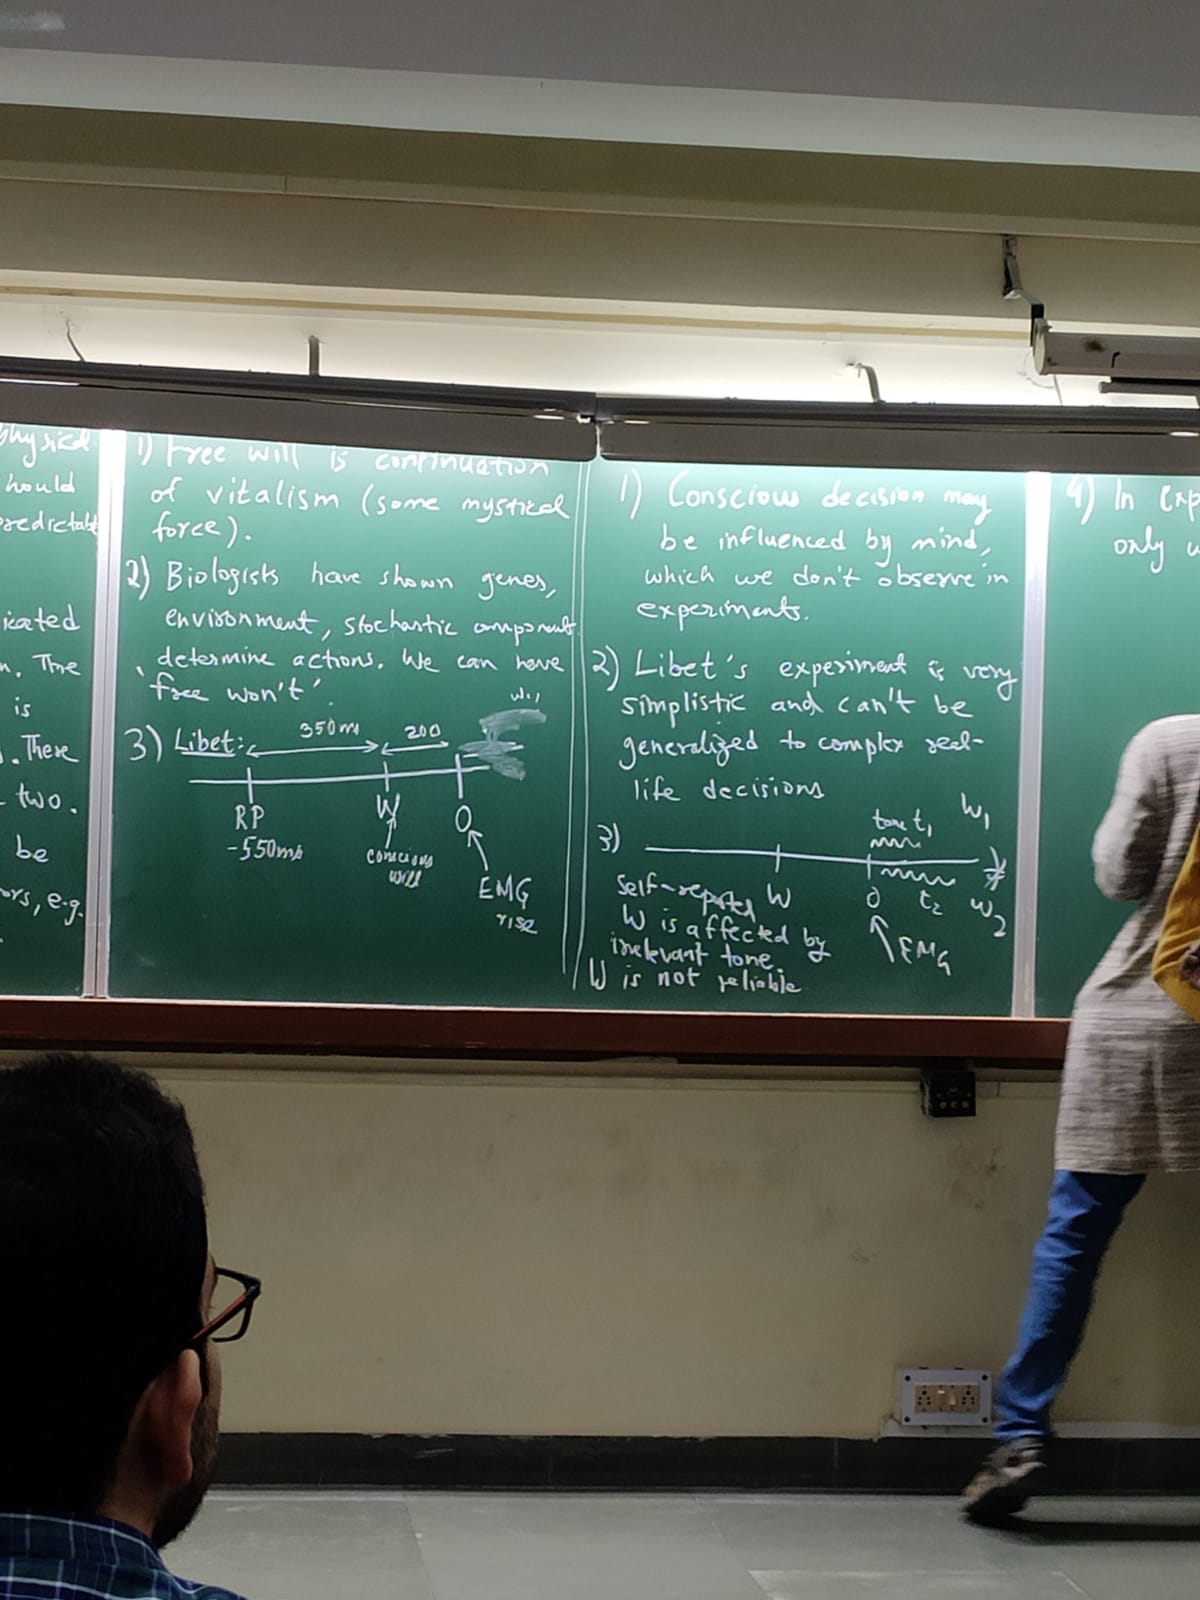 physical
hould
predictab
icated
n. The
is
. There
two.
be
ors, e.g.
1) Free will is continuation
of vitalism (some mystical
force).
2) Biologists have shown genes,
environment, stochastic component
determine actions. We can have
'free won't'.
3) Libet:
350ms
200
RP
-550ms
W
conscious
will
0
EMG
rise
1) Conscious decision may
be influenced by mind,
which we don't observe in
experiments.
2) Libet's experiment is very
simplistic and can't be
generalized to complex real-
life decisions
3)
tone t1
W1
0
t2
W2
EMG
Self-reported W
W is affected by
irrelevant tone
W is not reliable
4) In exp
only